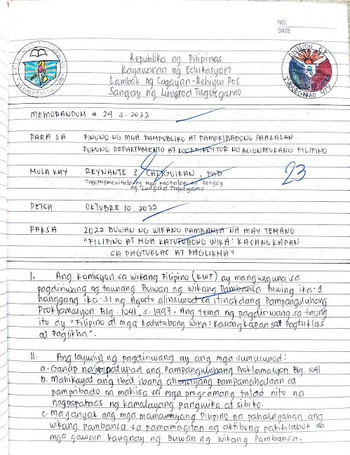 NO.
DATE
Republika ng Pilipinas
Kagawaran ng Edukasyon
Lambak ng Cagayan-Rehiyon Dos
Sangay ng Lungsod Tuguegarao
MEMORANDUM # 29 s. 2022
PARA SA PINUNO NG MGA PAMPUBLIKO AT PAMPRIBADONG PAARALAN
PUNONG DEPARTAMENTO AT KOORDINEYTOR NG ASIGNATURANG FILIPINO
MULA KAY REYNANTE Z. CALIGUIRAN, PhD 23
ng Lungsod Tuguegarao
PETSA OKTUBRE 10, 2022
PAKSA 2022 BUWAN NG WIKANG PAMBANSA NA MAY TEMANG
"FILIPINO AT MGA KATUTUBONG WIKA: KASANGKAPAN
SA PAGTUKLAS AT PAGLIKHA"
I. Ang Komisyon sa Wikang Filipino (KWF) ay mangunguna sa
pagdiriwang ng taunang Buwan ng Wikang Pambansa tuwing ika-1
hanggang ika-31 ng Agosto alinsunod sa itinatadang Pampanguluhang
Proklamasyon Blg. 1041, s. 1997. Ang tema ng pagdiriwang sa taong
ito ay "Filipino at mga katutubong Wika: Kasangkapan sa Pagtuklas
at Paglikha".
II. Ang layunin ng pagdiriwang ay ang mga sumusunod:
a. Ganap na ipatupad ang Pampanguluhang Proklamasyon Blg. 1041
b. Mahikayat ang iba't ibang ahensiyang pampamahalaan at
pampribado na makiisa sa mga programang tulad nito na
nagpapataas ng kamalayang pangwika at sibiko.
c. Maganyak ang mga mamamayang Pilipino na pahalagahan ang
wikang pambansa sa pamamagitan ng aktibong pakikilahok sa
mga gawain kaugnay ng Buwan ng Wikang Pambansa.